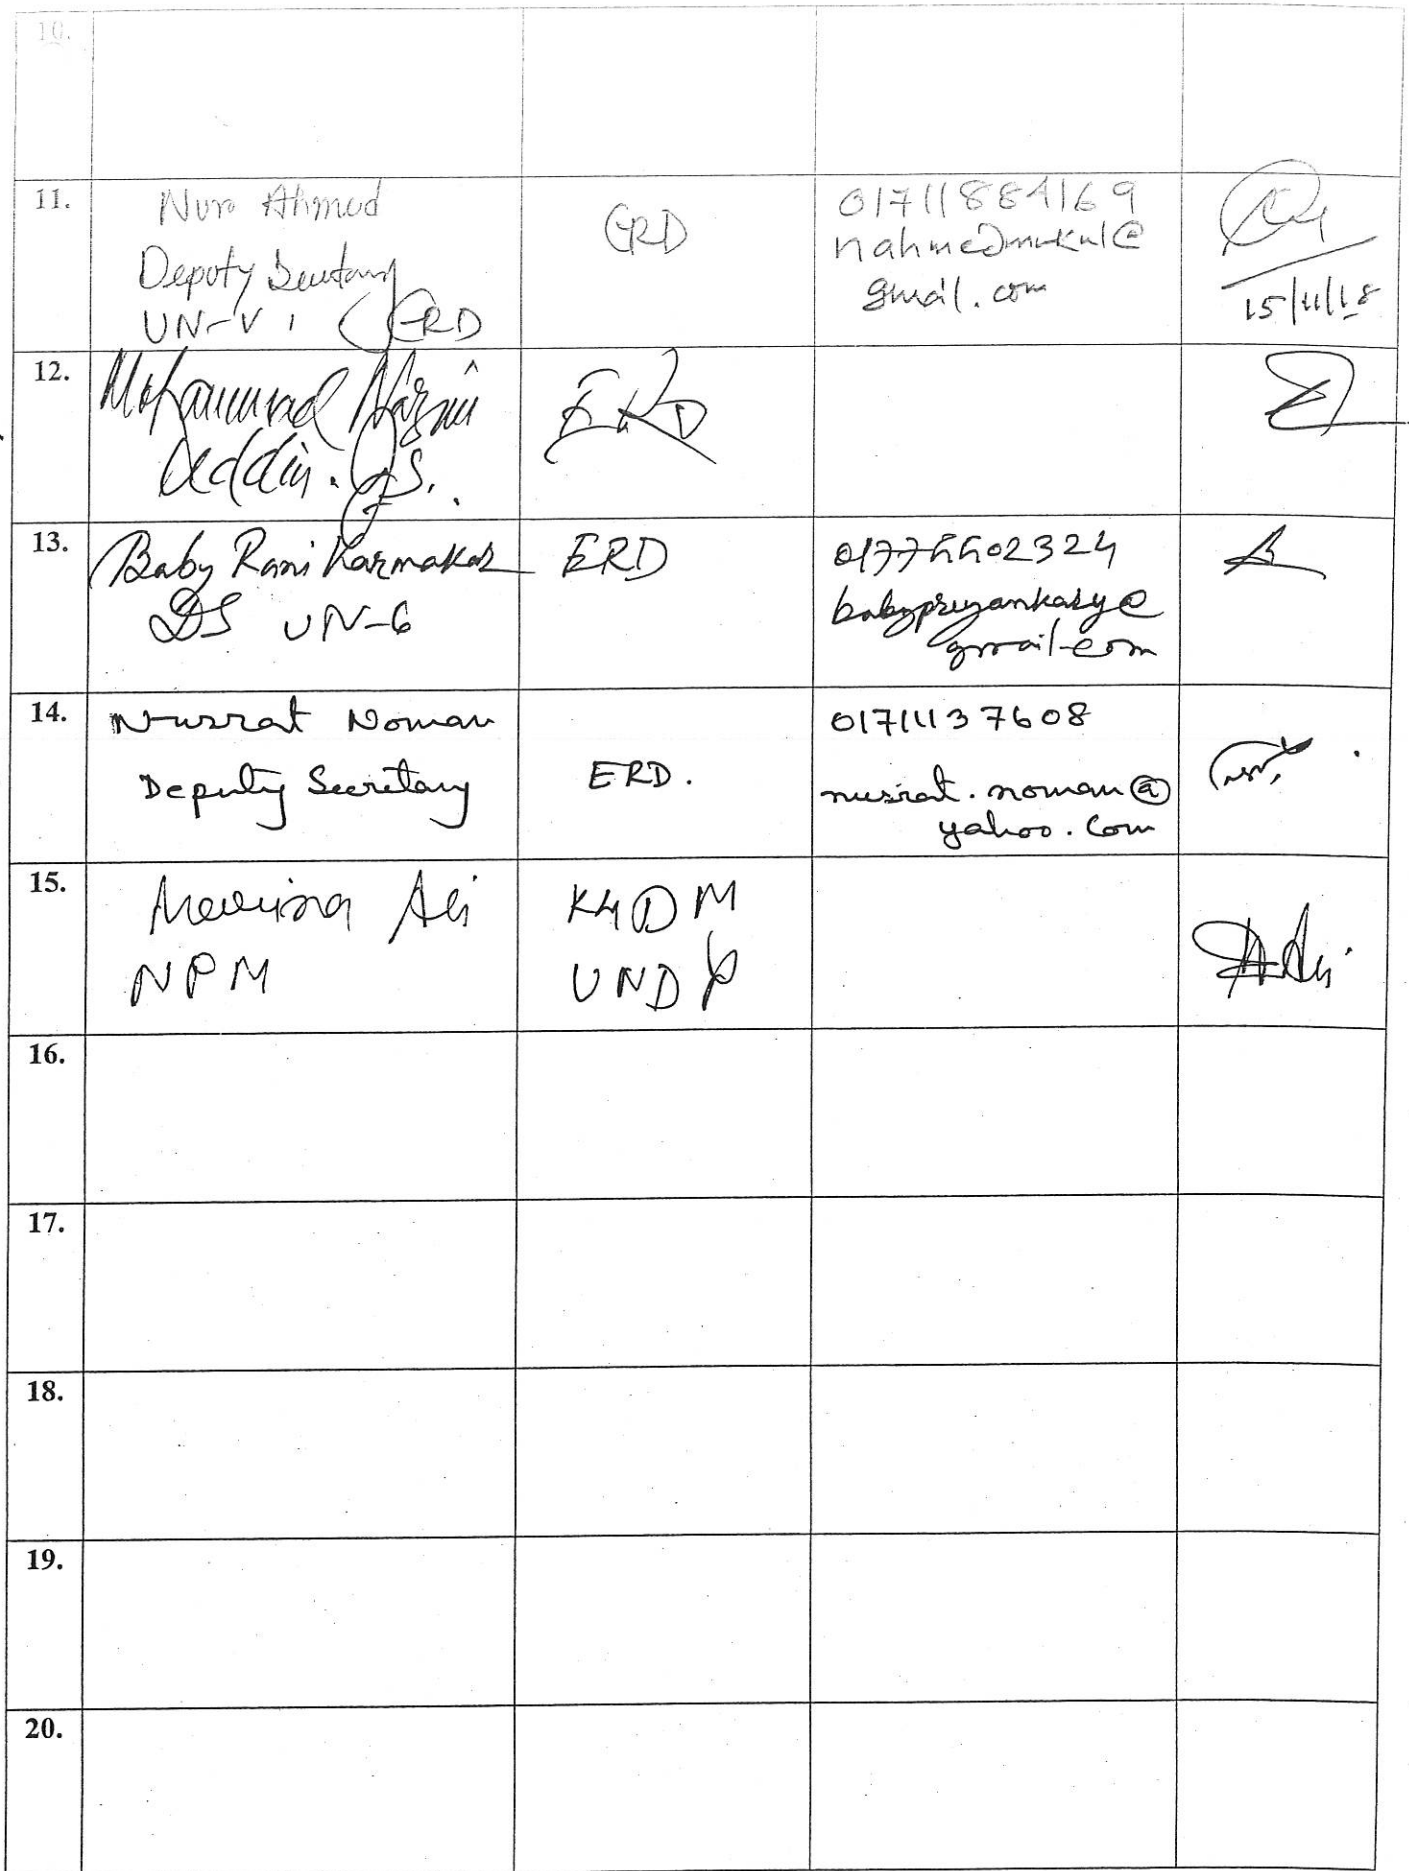 10.
11.
Nuro Ahmed
Deputy Secretary
UN-V, ERD
ERD
nahmedmukul@
gmail.com
15/11/18
12.
Mohammad Nazim
Uddin. J.S.
ERD
13.
Baby Rani Karmakar
DS UN-6
ERD
gmail.com
14.
Nusrat Noman
Deputy Secretary
ERD.
01711137608
nusrat.noman@
yahoo.com
15.
Ali
NPM
K4DM
UNDP
16.
17.
18.
19.
20.